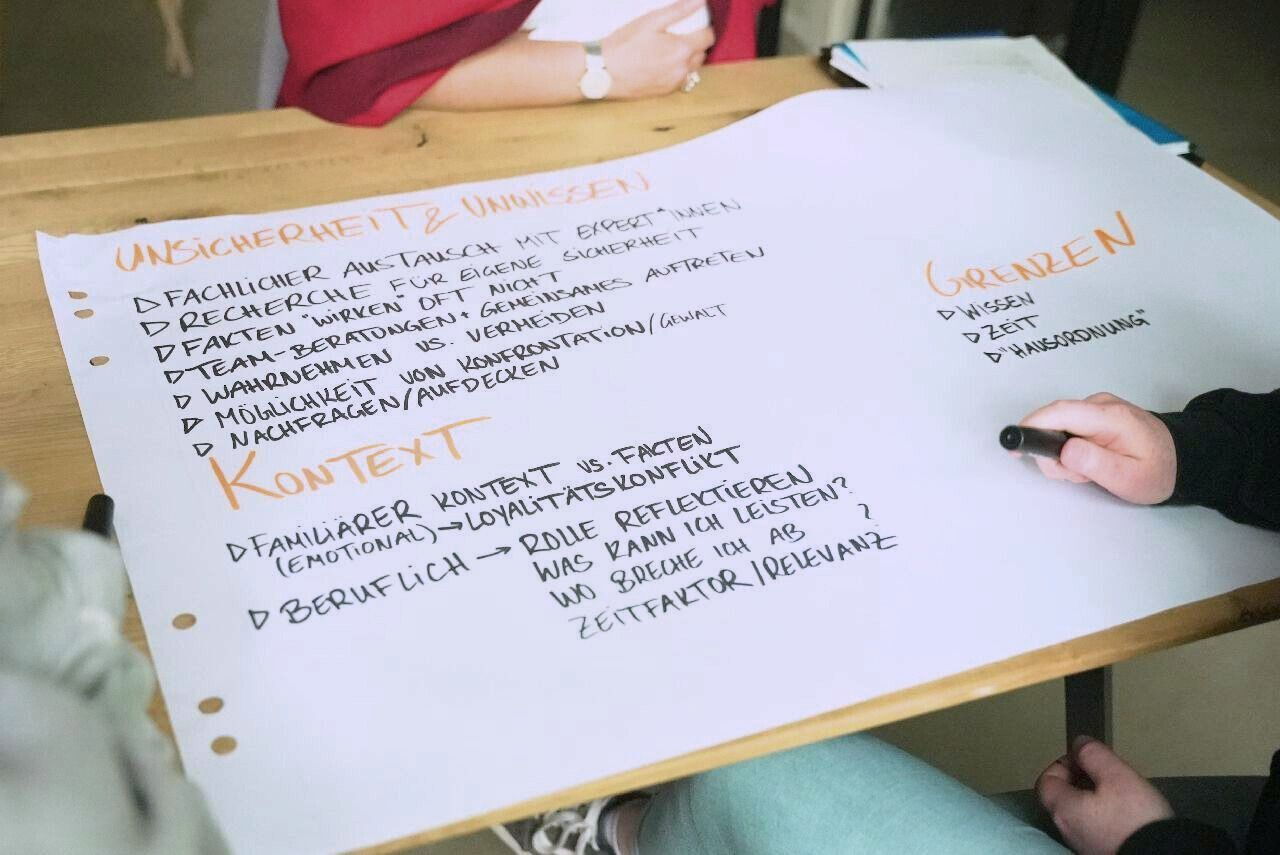 UNSICHERHEIT & UNWISSEN
▷ FACHLICHER AUSTAUSCH MIT EXPERT*INNEN
▷ RECHERCHE FÜR EIGENE SICHERHEIT
▷ FAKTEN "WIRKEN" OFT NICHT
▷ TEAM-BERATUNGEN + GEMEINSAMES AUFTRETEN
▷ WAHRNEHMEN VS. VERMEIDEN
▷ MÖGLICHKEIT VON KONFRONTATION/GEWALT
▷ NACHFRAGEN/AUFDECKEN
KONTEXT
▷ FAMILIÄRER KONTEXT vs. FACTEN
(EMOTIONAL) → LOYALITÄTSKONFLIKT
▷ BERUFLICH → ROLLE REFLEKTIEREN
WAS KANN ICH LEISTEN?
WO BRECHE ICH AB ?
ZEITFAKTOR/RELEVANZ
GRENZEN
▷ WISSEN
▷ ZEIT
▷ "HAUSORDNUNG"